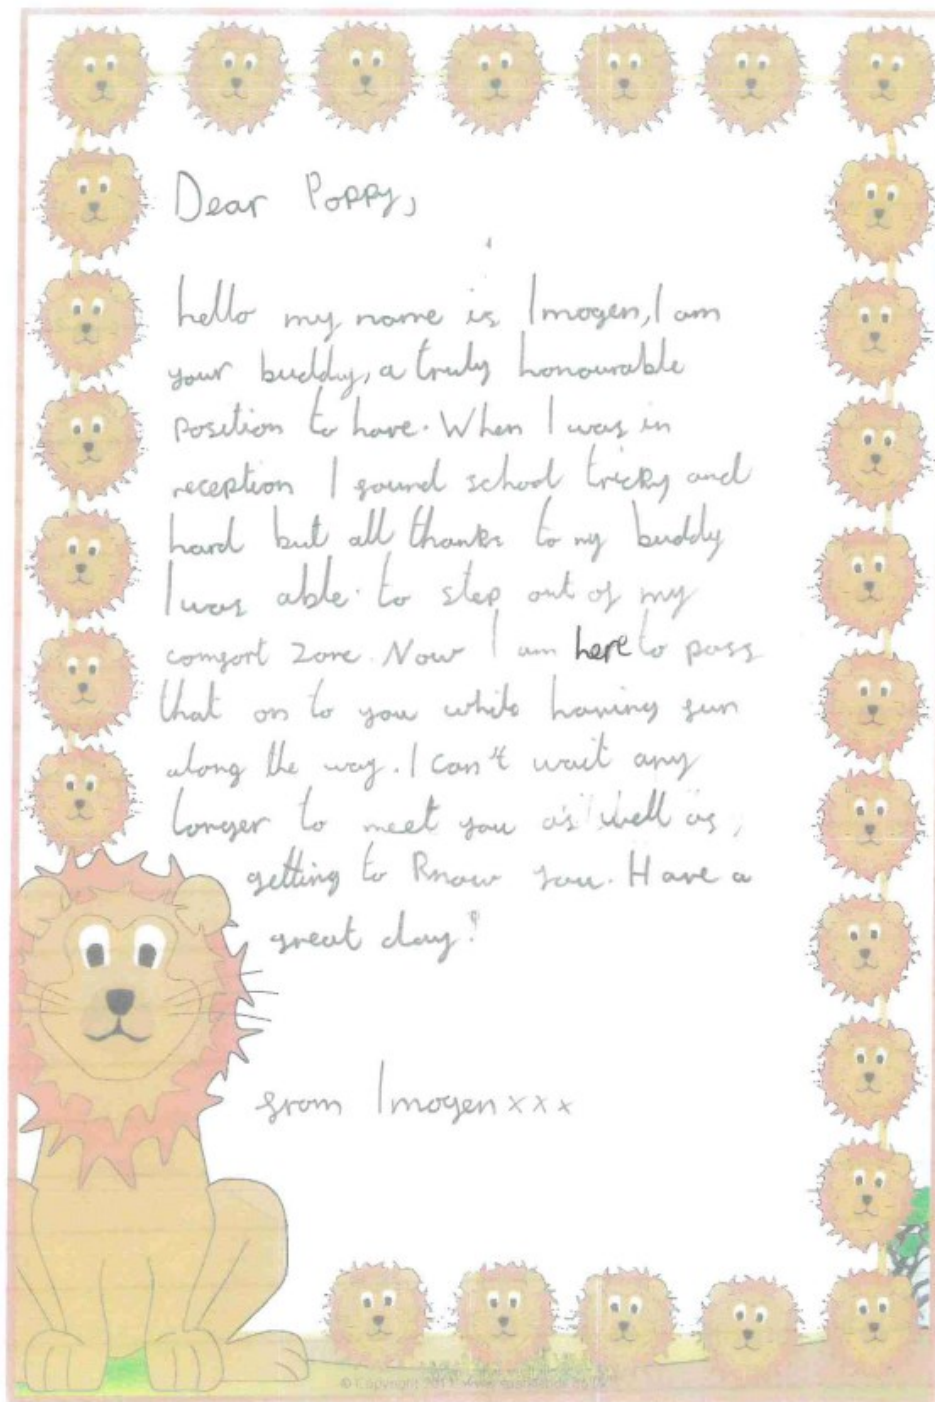 Dear Poppy,
hello my name is Imogen, I am
your buddy, a truly honourable
position to have. When I was in
reception I found school tricky and
hard but all thanks to my buddy
I was able to step out of my
comfort zone. Now I am here to pass
that on to you while having fun
along the way. I can't wait any
longer to meet you as well as,
getting to know you. Have a
great day!
from Imogen xxx
© Copyright